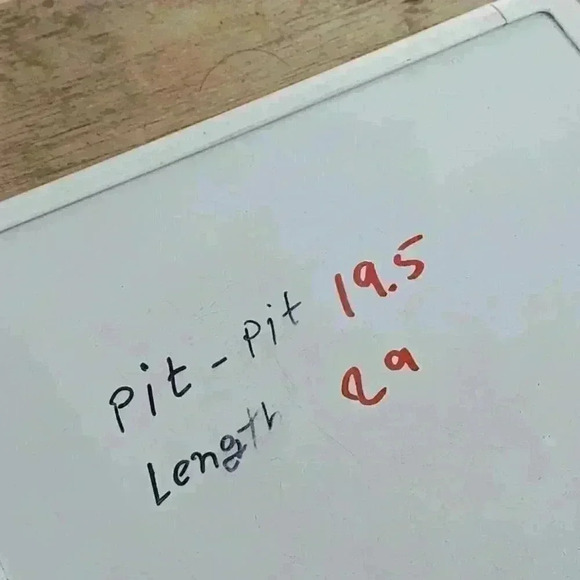 Pit - Pit 19.5
Length 29